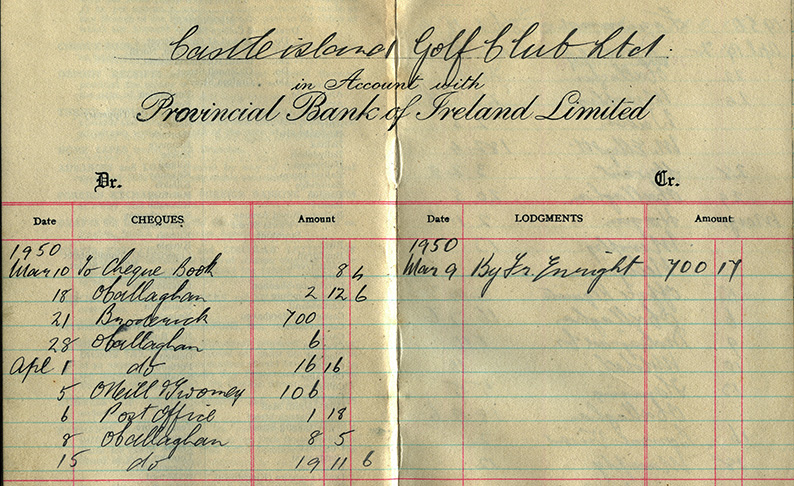 Castleisland Golf Club Ltd.
in Account with
Provincial Bank of Ireland Limited
Dr. Cr.
Date CHEQUES Amount Date LODGMENTS Amount
1950 1950
Mar 10 To Cheque Book 8 6 Mar 9 By Fr. Enright 700 17
18 OCallaghan 2 12 6
21 Broderick 700
28 OCallaghan 6
Apl 1 do 16 16
5 ONeill & Twomey 106
6 Post Office 1 18
8 OCallaghan 8 5
15 do 19 11 6